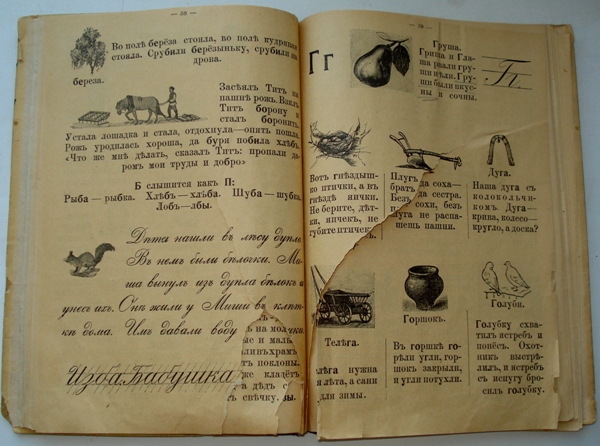 — 38 —
Во полѣ берёза стояла, во полѣ кудрявая
стояла. Срубили берёзыньку, срубили на
дрова.
береза.
Засѣялъ Титъ на
пашнѣ рожь. Взялъ
Титъ борону и
сталъ боронить.
Устала лошадка и стала, отдохнула—опять пошла.
Рожь уродилась хороша, да буря побила хлѣбъ.
«Что же мнѣ дѣлать, сказалъ Титъ: пропали да-
ромъ мои труды и добро»
Б слышится какъ П:
Рыба — рыбка. Хлѣбъ — хлѣба. Шуба — шубка.
Лобъ — лбы.
Дѣти нашли въ лѣсу дупло
Въ немъ были бѣлочки. Ми-
ша вынулъ изъ дупла бѣлокъ и
унесъ ихъ. Онѣ жили у Миши въ клѣт-
кѣ дома. Имъ давали воду
Изба Бабушка
ъ на мо
ые и мал
ливъ храм
тъ поклоны,
же кладётъ
а дѣдъ с
ъ свѣчку.
— 39 —
Гг
Груша.
Гриша и Гла-
ша рвали гру-
ши и ѣли. Гру-
ши были вкус-
ны и сочны.
Гг.
Вотъ гнѣздыш-
ко птички, а въ
гнѣздѣ яички.
Не берите, дѣт-
ки, яичекъ, не
губите птичекъ.
Плугъ да соха—
братъ да сестра.
Безъ сохи, безъ
плуга не распа-
шешь пашни.
Дуга.
Наша дуга съ
колокольчи-
комъ. Дуга—
крива, колесо—
кругло, а доска?
Телѣга.
лѣга нужна
лѣта, а сани
для зимы.
Горшокъ.
Въ горшкѣ го-
рѣли угли, гор-
шокъ закрыли,
и угли потухли.
Голуби.
Голубку схва-
тилъ ястребъ и
понёсъ. Охот-
никъ выстрѣ-
лилъ, и ястребъ
съ испугу бро-
силъ голубку.